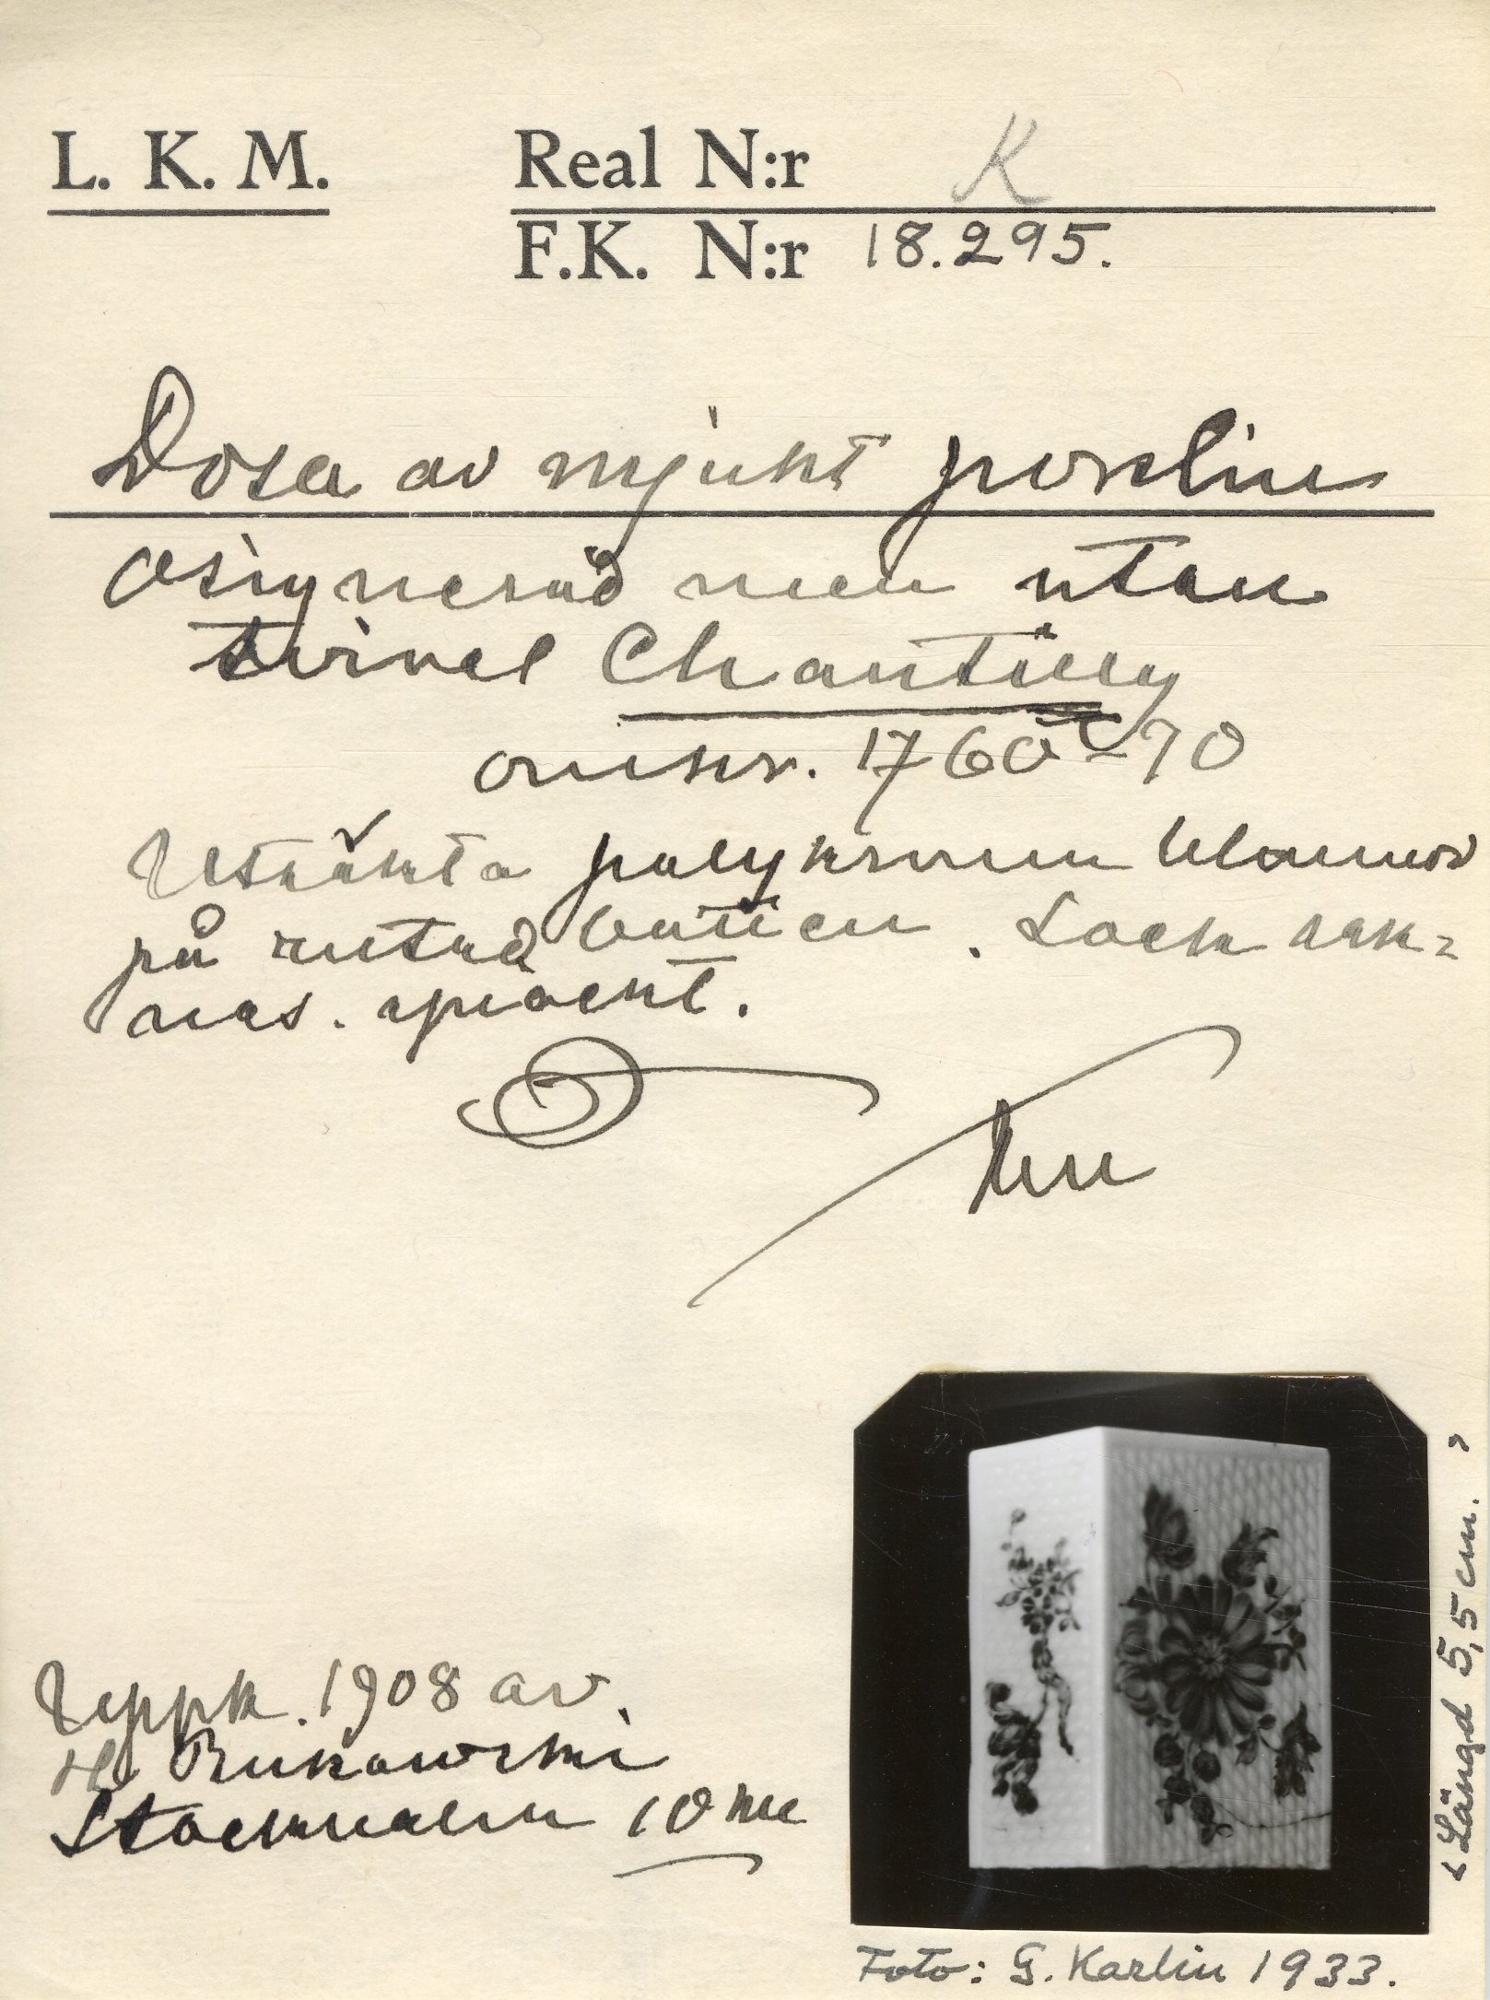 L. K. M.
Real N:r K
F.K. N:r 18.295.
Dosa av mjukt porslin
osignerad men utan
tvivel Chantilly
omkr. 1760-70
Utsökta polykroma blommor
på rutad botten. Lock sak-
nas.
Uppk. 1908 av
H. Bukowski
Stockholm 10 kr
Längd 5,5 cm.
Foto: G. Karlin 1933.